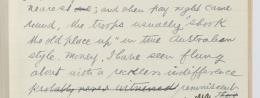 nearest me; and when pay night came
round, the troops usually "shook
the old place up" in true Australian
style. Money, I have seen flung
about with a reckless indifference
probably never witnessed reminiscent